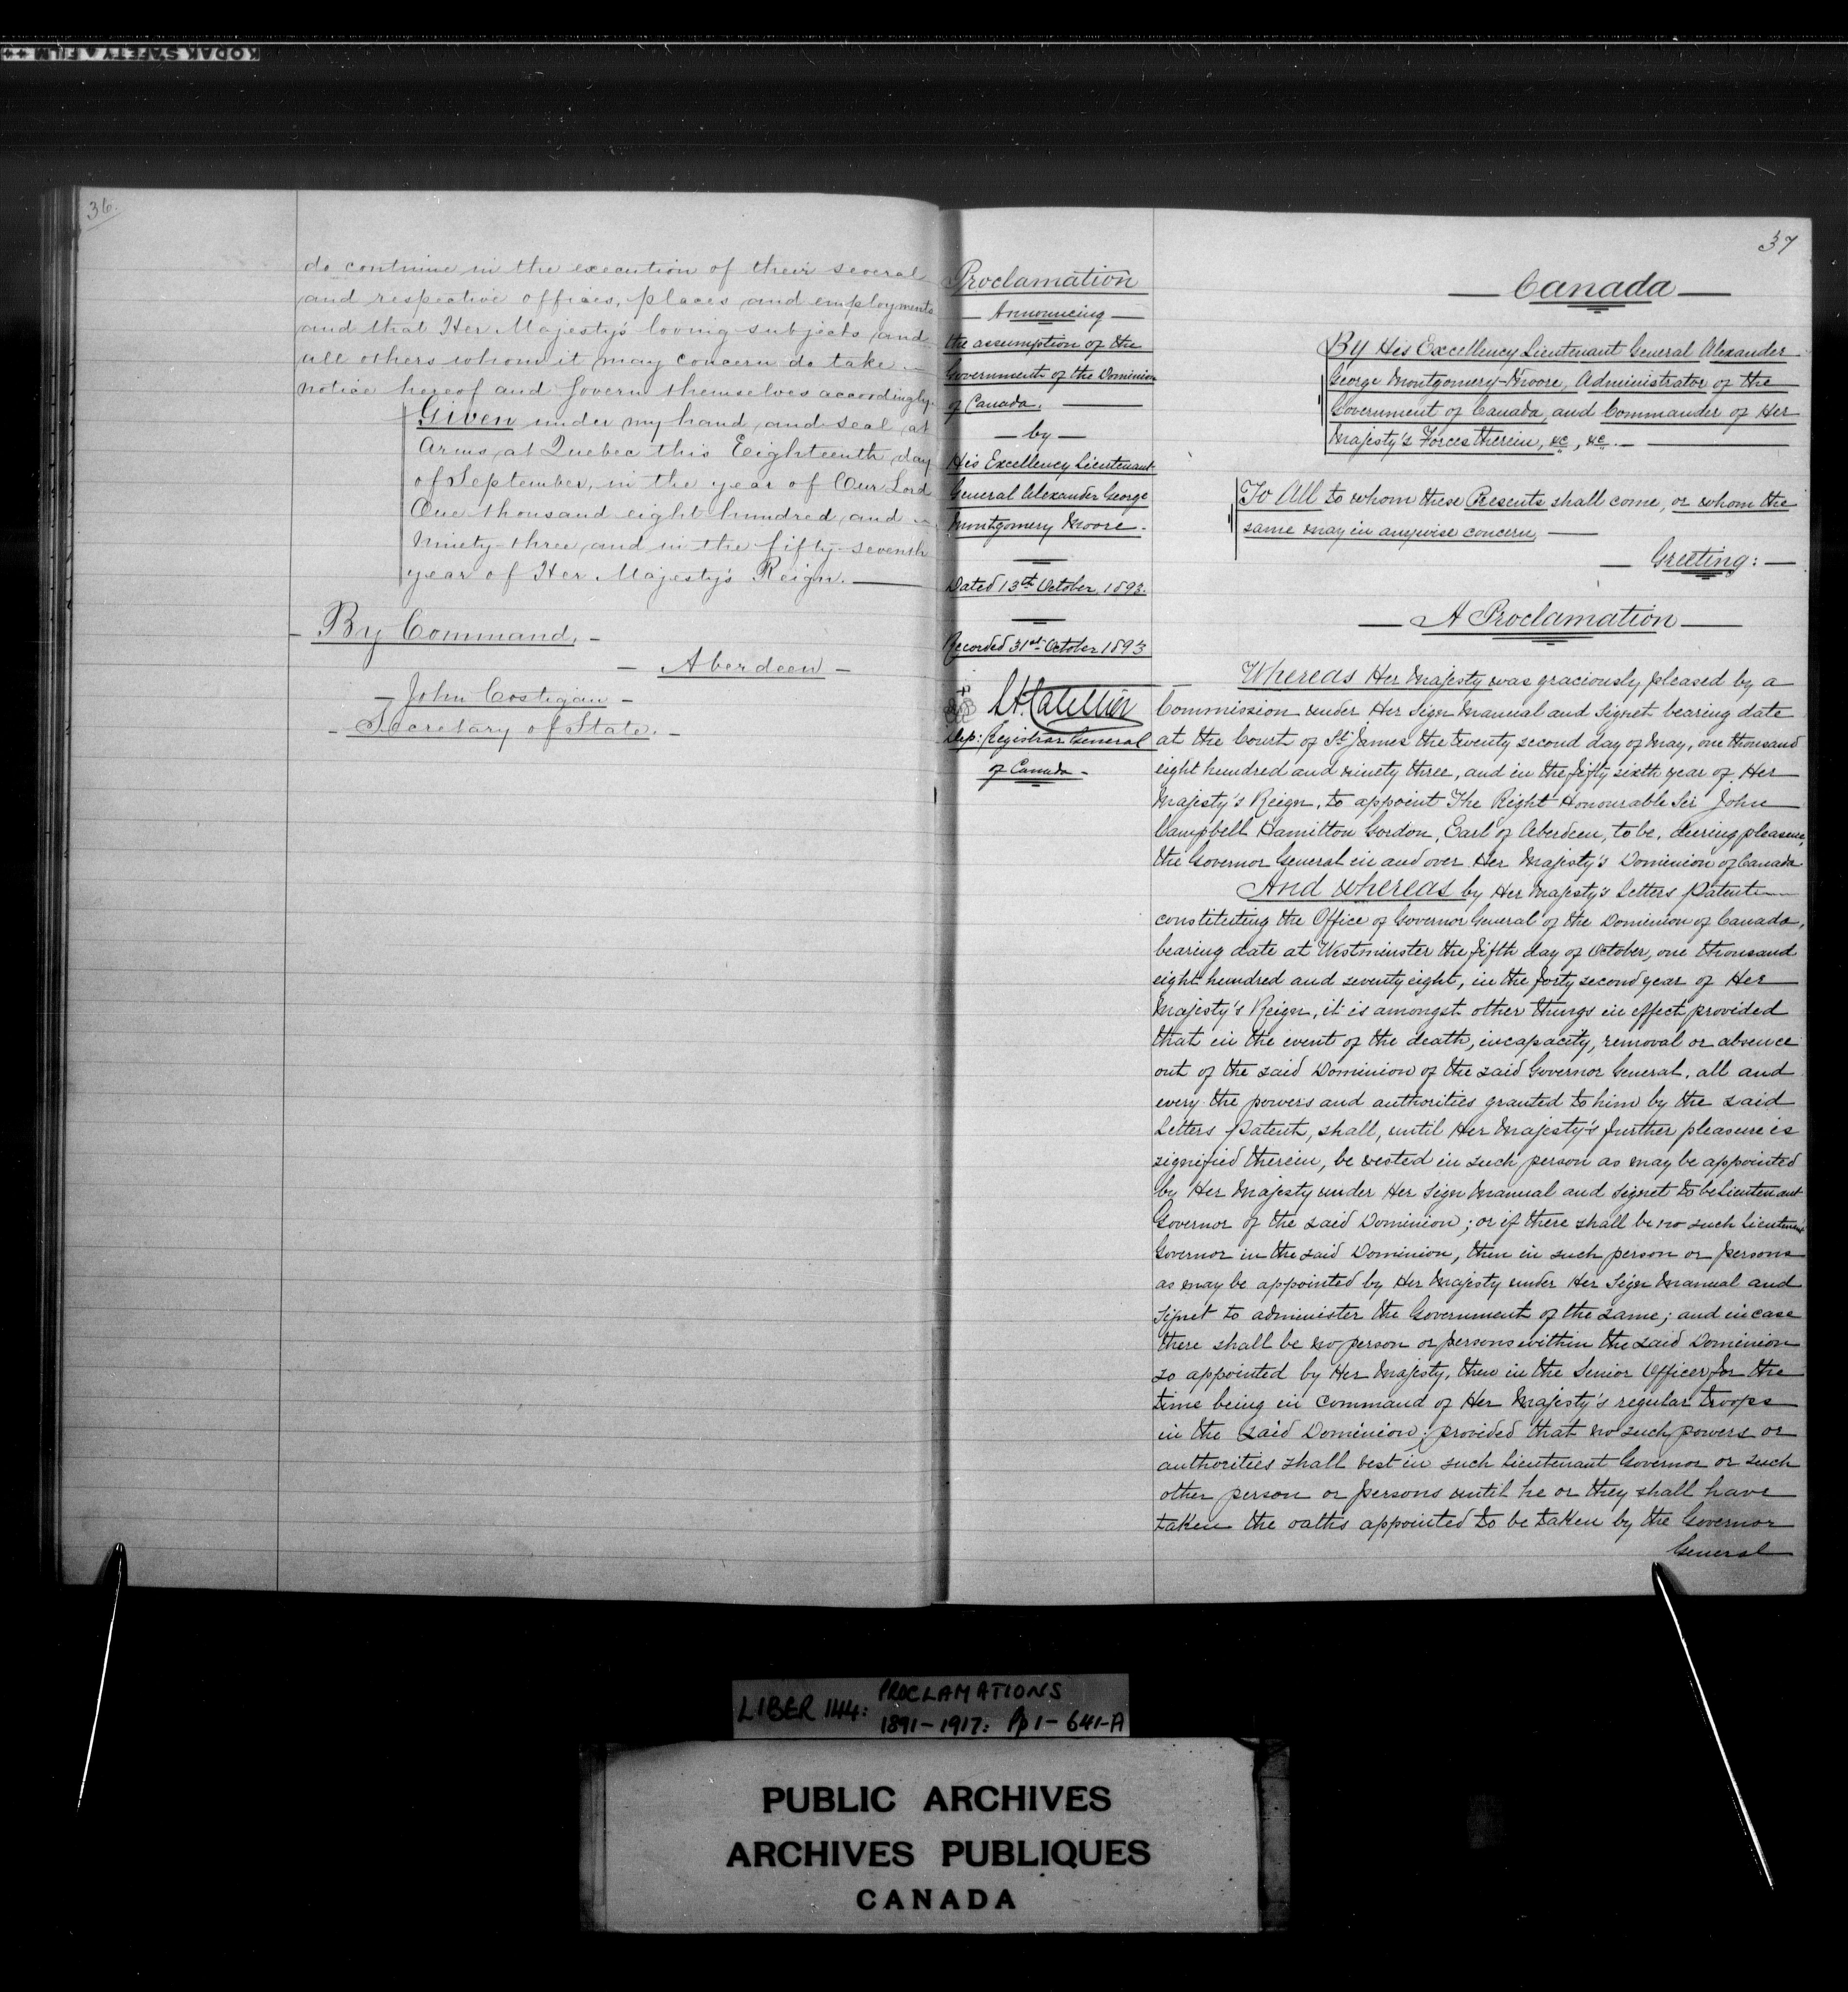 KODAK SAFETY FILM
36.
do continue in the execution of their several
and respective offices, places and employments
and that Her Majesty's loving subjects and
all others whom it may concern do take
notice hereof and govern themselves accordingly.
Given under my hand and seal at
Arms, at Quebec this Eighteenth day
of September, in the year of Our Lord
One thousand eight hundred and
Ninety-three and in the fifty-seventh
year of Her Majesty's Reign.
By Command,
Aberdeen
John Costigan
Secretary of State.
Proclamation
Announcing
the assumption of the
Government of the Dominion
of Canada.
by
His Excellency Lieutenant
General Alexander George
Montgomery Moore.
Dated 13th October, 1893.
Recorded 31st October 1893
L.A. Catellier
Dep: Registrar General
of Canada
37
Canada
By His Excellency Lieutenant General Alexander
George Montgomery-Moore, Administrator of the
Government of Canada, and Commander of Her
Majesty's Forces therein, &c, &c.
To All to whom these Presents shall come, or whom the
same may in anywise concern,
Greeting:
A Proclamation
Whereas Her Majesty was graciously pleased by a
Commission under Her Sign Manual and Signet bearing date
at the Court of St James the twenty second day of May, one thousand
eight hundred and ninety three, and in the fifty sixth year of Her
Majesty's Reign, to appoint The Right Honourable Sir John
Campbell Hamilton Gordon, Earl of Aberdeen, to be, during pleasure,
the Governor General in and over Her Majesty's Dominion of Canada
And whereas by Her Majesty's Letters Patent
constituting the Office of Governor General of the Dominion of Canada,
bearing date at Westminster the fifth day of October, one thousand
eight hundred and seventy eight, in the forty second year of Her
Majesty's Reign, it is amongst other things in effect provided
that in the event of the death, incapacity, removal or absence
out of the said Dominion of the said Governor General, all and
every the powers and authorities granted to him by the said
Letters Patent, shall, until Her Majesty's further pleasure is
signified therein, be vested in such person as may be appointed
by Her Majesty under Her Sign Manual and Signet to be Lieutenant
Governor of the said Dominion; or if there shall be no such Lieutenant
Governor in the said Dominion, then in such person or persons
as may be appointed by Her Majesty under Her Sign Manual and
Signet to administer the Government of the same; and in case
there shall be no person or persons within the said Dominion
so appointed by Her Majesty, then in the Senior Officer for the
time being in command of Her Majesty's regular troops
in the said Dominion; provided that no such powers or
authorities shall vest in such Lieutenant Governor or such
other person or persons until he or they shall have
taken the oaths appointed to be taken by the Governor
General
LIBER 144: PROCLAMATIONS
1891-1917: Pp 1-641-A
PUBLIC ARCHIVES
ARCHIVES PUBLIQUES
CANADA